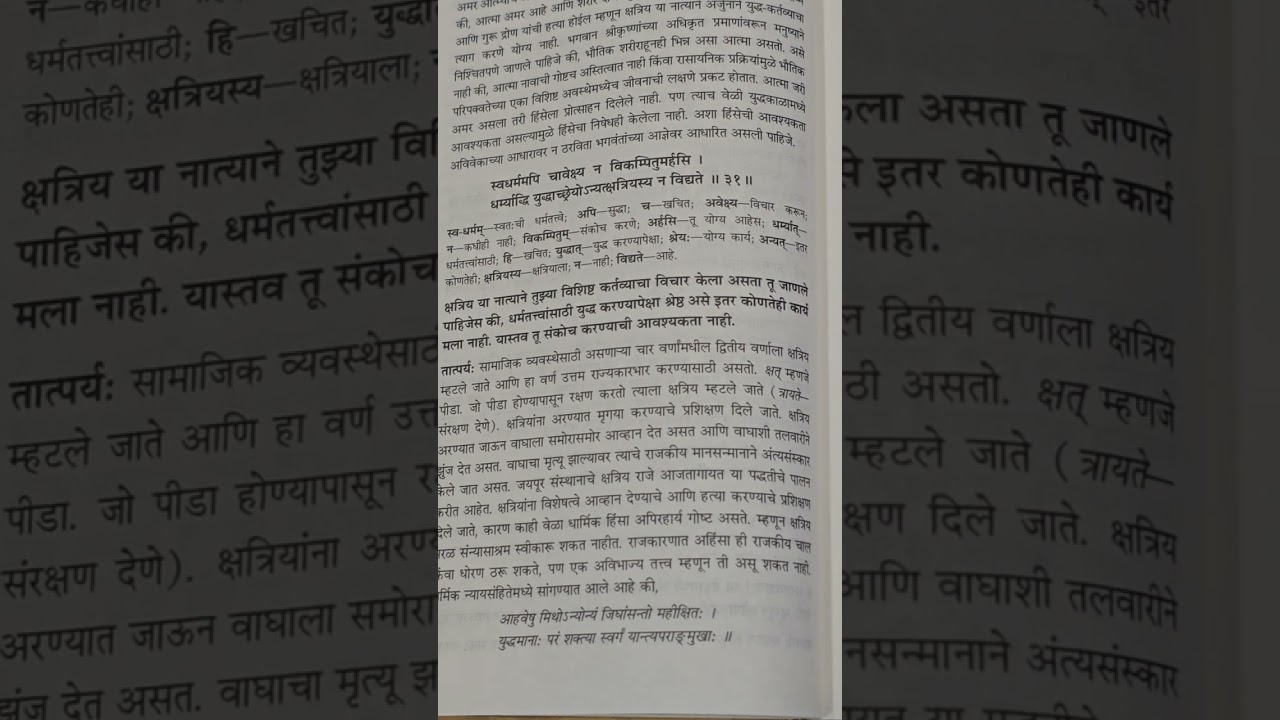 की, आत्मा अमर आहे आणि शरीर
आणि गुरू द्रोण यांची हत्या होईल म्हणून क्षत्रिय या नात्याने अर्जुनाने युद्ध-कर्तव्याचा
त्याग करणे योग्य नाही. भगवान श्रीकृष्णांच्या अधिकृत प्रमाणांवरून मनुष्याने
निश्चितपणे जाणले पाहिजे की, भौतिक शरीराहूनही भिन्न असा आत्मा असतो. असे
नाही की, आत्मा नावाची गोष्टच अस्तित्वात नाही किंवा रासायनिक प्रक्रियांमुळे भौतिक
परिपक्वतेच्या एका विशिष्ट अवस्थेमध्येच जीवनाची लक्षणे प्रकट होतात. आत्मा जरी
अमर असला तरी हिंसेला प्रोत्साहन दिलेले नाही. पण त्याच वेळी युद्धकाळामध्ये
आवश्यकता असल्यामुळे हिंसेचा निषेधही केलेला नाही. अशा हिंसेची आवश्यकता
अविवेकाच्या आधारावर न ठरविता भगवंतांच्या आज्ञेवर आधारित असली पाहिजे.
स्वधर्ममपि चावेक्ष्य न विकम्पितुमर्हसि ।
धर्म्याद्धि युद्धाच्छ्रेयोऽन्यत्क्षत्रियस्य न विद्यते ॥ ३१॥
स्व-धर्मम्—स्वतःची धर्मतत्त्वे; अपि—सुद्धा; च—खचित; अवेक्ष्य—विचार करून;
न—कधीही नाही; विकम्पितुम्—संकोच करणे; अर्हसि—तू योग्य आहेस; धर्म्यात्—
धर्मतत्त्वांसाठी; हि—खचित; युद्धात्—युद्ध करण्यापेक्षा; श्रेयः—योग्य कार्य; अन्यत्—इतर
कोणतेही; क्षत्रियस्य—क्षत्रियाला; न—नाही; विद्यते—आहे.
क्षत्रिय या नात्याने तुझ्या विशिष्ट कर्तव्याचा विचार केला असता तू जाणले
पाहिजेस की, धर्मतत्त्वांसाठी युद्ध करण्यापेक्षा श्रेष्ठ असे इतर कोणतेही कार्य
मला नाही. यास्तव तू संकोच करण्याची आवश्यकता नाही.
तात्पर्य: सामाजिक व्यवस्थेसाठी असणाऱ्या चार वर्णांमधील द्वितीय वर्णाला क्षत्रिय
म्हटले जाते आणि हा वर्ण उत्तम राज्यकारभार करण्यासाठी असतो. क्षत् म्हणजे
पीडा. जो पीडा होण्यापासून रक्षण करतो त्याला क्षत्रिय म्हटले जाते (त्रायते—
संरक्षण देणे). क्षत्रियांना अरण्यात मृगया करण्याचे प्रशिक्षण दिले जाते. क्षत्रिय
अरण्यात जाऊन वाघाला समोरासमोर आव्हान देत असत आणि वाघाशी तलवारीने
झुंज देत असत. वाघाचा मृत्यू झाल्यावर त्याचे राजकीय मानसन्मानाने अंत्यसंस्कार
केले जात असत. जयपूर संस्थानाचे क्षत्रिय राजे आजतागायत या पद्धतीचे पालन
करीत आहेत. क्षत्रियांना विशेषत्वे आव्हान देण्याचे आणि हत्या करण्याचे प्रशिक्षण
दिले जाते, कारण काही वेळा धार्मिक हिंसा अपरिहार्य गोष्ट असते. म्हणून क्षत्रिय
रळ संन्यासाश्रम स्वीकारू शकत नाहीत. राजकारणात अहिंसा ही राजकीय चाल
कंवा धोरण ठरू शकते, पण एक अविभाज्य तत्त्व म्हणून ती असू शकत नाही.
र्मिक न्यायसंहितेमध्ये सांगण्यात आले आहे की,
आहवेषु मिथोऽन्योन्यं जिघांसन्तो महीक्षितः ।
युद्धमानाः परं शक्त्या स्वर्गं यान्त्यपराङ्मुखाः ॥